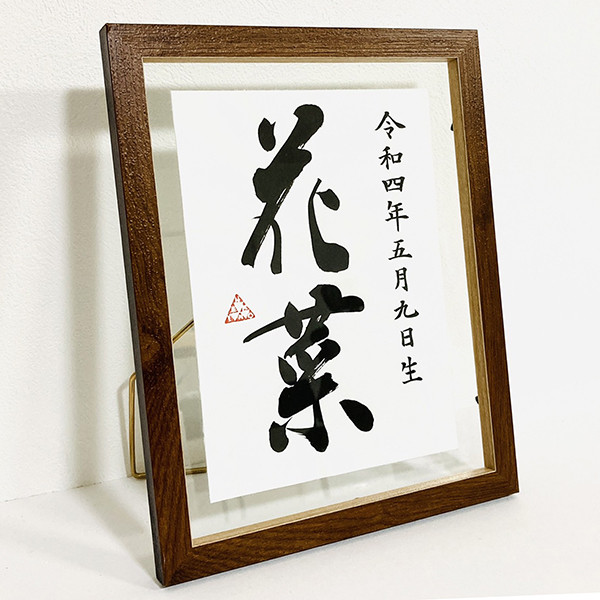 令和四年五月九日生
花菜